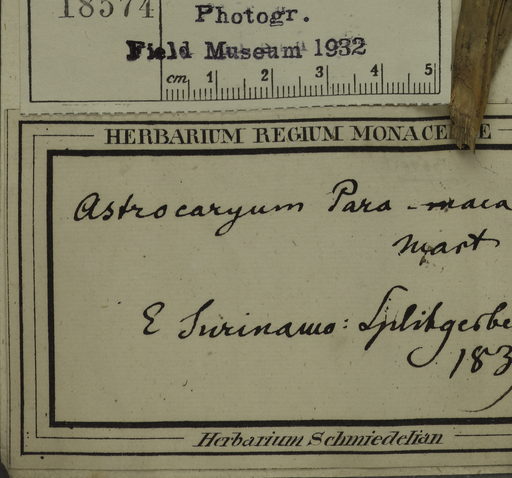 18574
Photogr.
Field Museum 1932
cm 1 2 3 4 5
HERBARIUM REGIUM MONACE E
Astrocaryum Para-maca
Mart
E Surinamo: Splitgerbe
183
Herbarium Schmiedelian